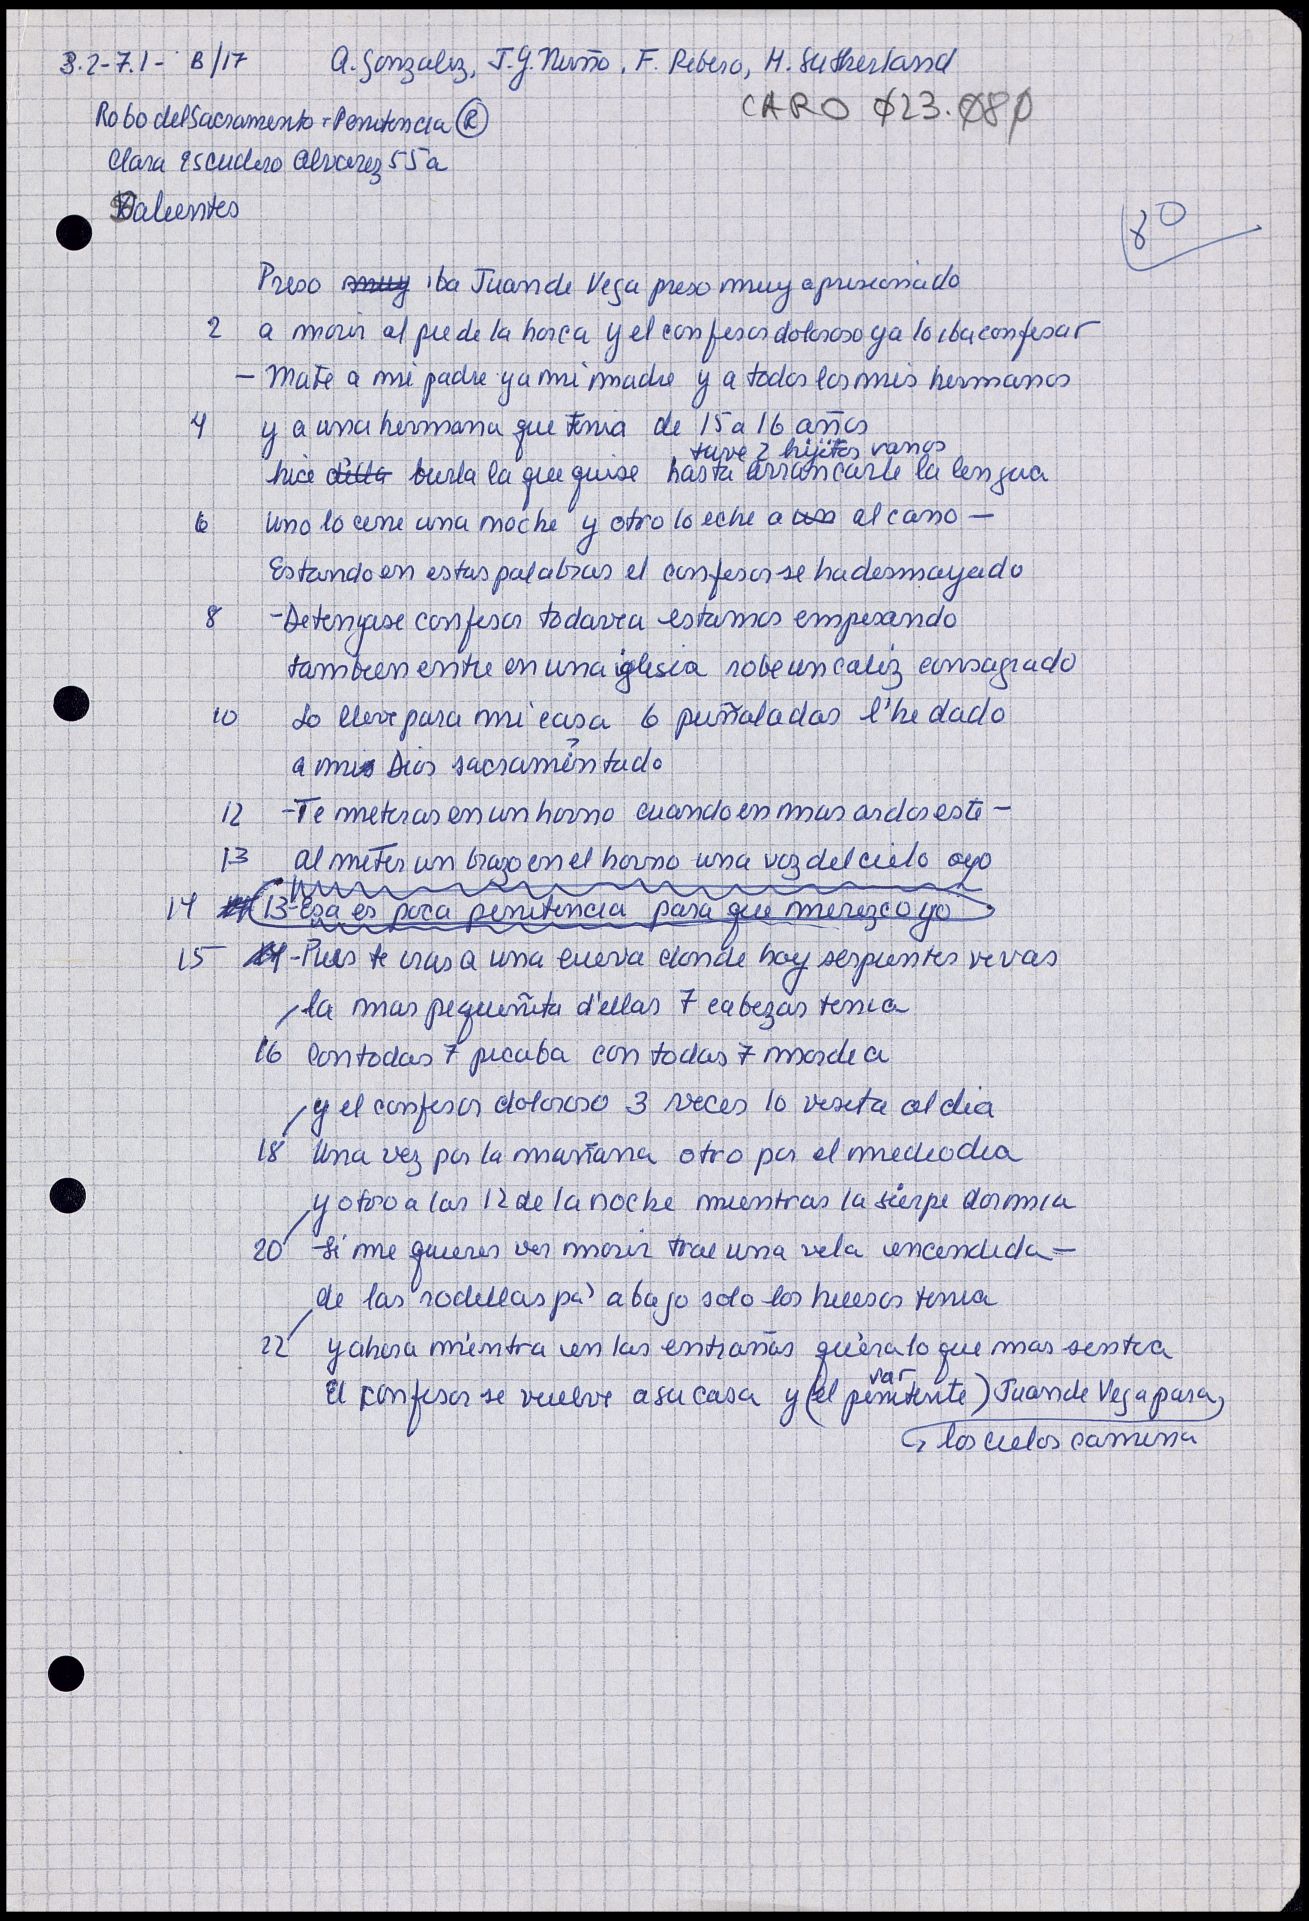 3.2-7.1- B/17 A. Gonzalez, J.G. Nuño, F. Ribero, M. Sutherland
CARO 023.080
Robo del Sacramento + Penitencia (R)
Clara Escudero Alvarez 55a
Valientes
80
Preso muy iba Juan de Vega preso muy aprisionado
2 a morir al pie de la horca y el confesor doloroso ya lo iba confesar
- Maté a mi padre y a mi madre y a todos los mis hermanos
4 y a una hermana que tenia de 15 a 16 años
tuve 2 hijitos varios
hice della burla la que quise hasta arrancarle la lengua
6 uno lo cene una noche y otro lo eche a un al caño -
Estando en estas palabras el confesor se ha desmayado
8 -Detengase confesor todavia estamos empesando
tambien entre en una iglesia robe un caliz consagrado
10 Lo lleve para mi casa 6 puñaladas l'he dado
a mis Dios sacramentado
?
12 -Te meteras en un horno cuando en mas ardor esté -
13 al meter un brazo en el horno una voz del cielo oyo
14 13-Esa es poca penitencia para que merezco yo
15 14 -Pues te iras a una cueva donde hay serpientes vivas
la mas pequeñita d'ellas 7 cabezas tenia
16 Con todas 7 picaba con todas 7 mordia
y el confesor doloroso 3 veces lo visita al dia
18 Una vez por la mañana otro por el mediodia
y otro a las 12 de la noche mientras la sierpe dormia
20 -Si me quieres ver morir trae una vela encendida -
de las rodillas pa' abajo solo los huesos tenia
22 y ahora m'entra en las entrañas qu'era lo que mas sentia
var
El confesor se vuelve a su casa y (el penitente) Juan de Vega para
los cielos camina